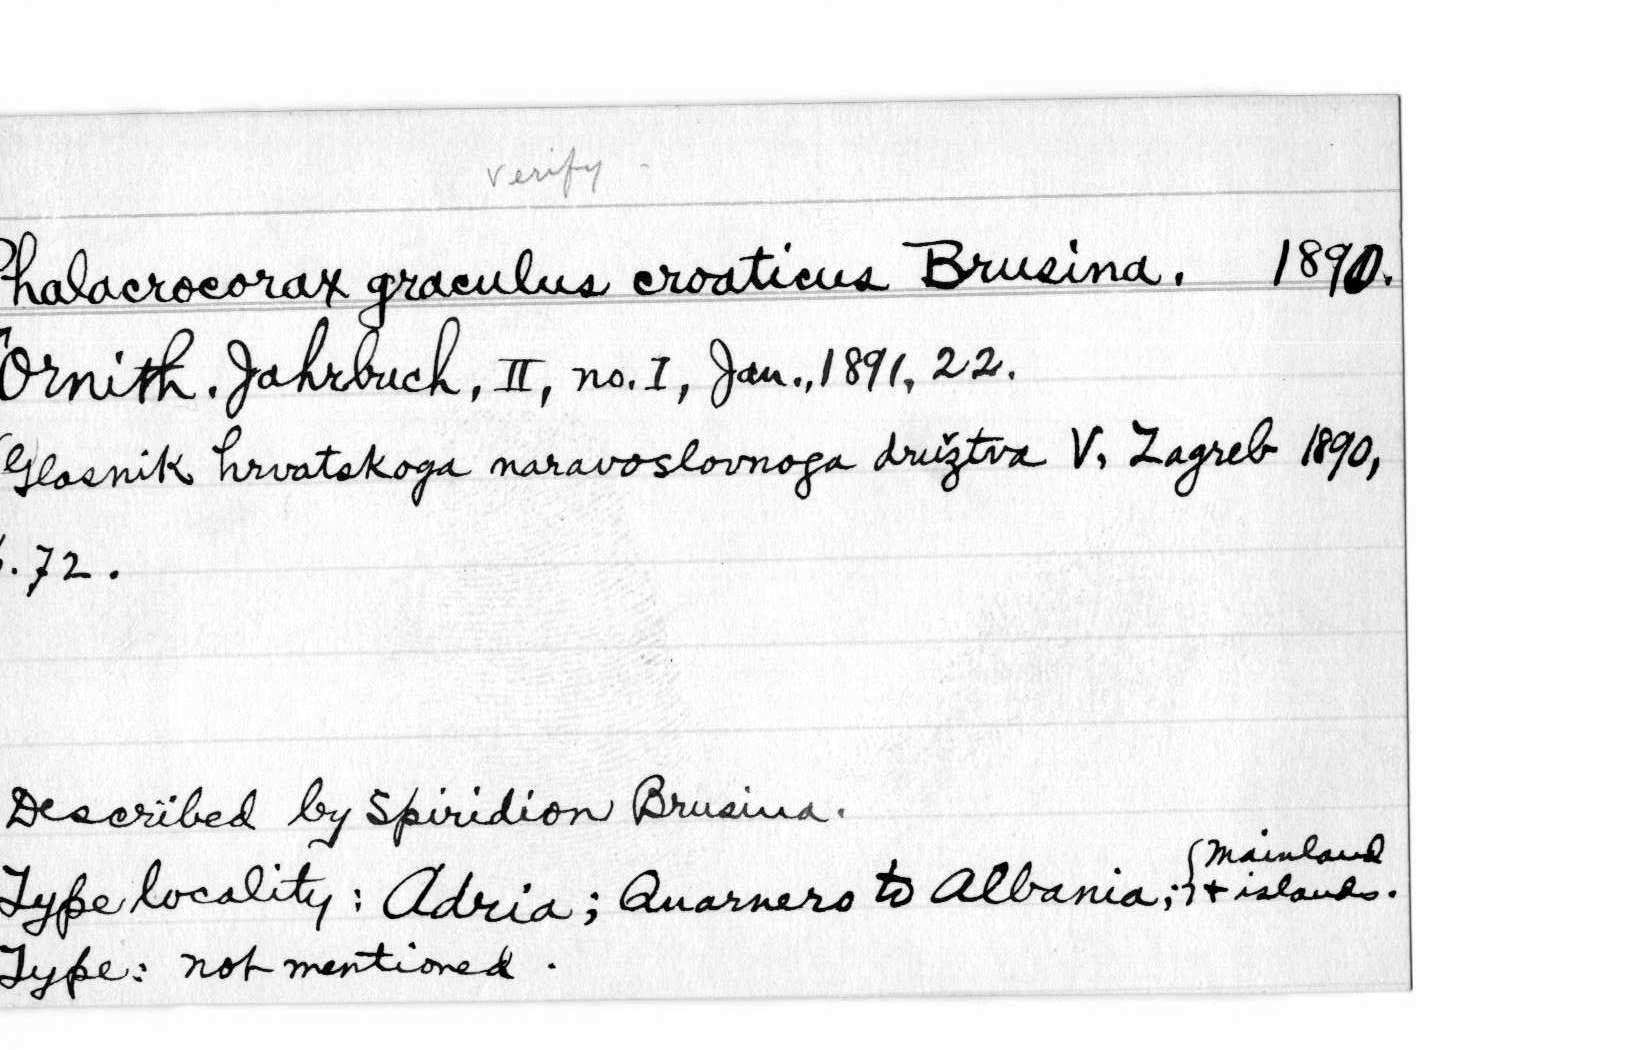 verify -
Phalacrocorax graculus croaticus Brusina. 1890.
Ornith. Jahrbuch, II, no. I, Jan., 1891, 22.
Glasnik hrvatskoga naravoslovnoga družtva V, Zagreb 1890,
p. 72.
Described by Spiridion Brusina.
Type locality: Adria; Quarnero to Albania; { Mainland
+ islands.
Type: not mentioned.